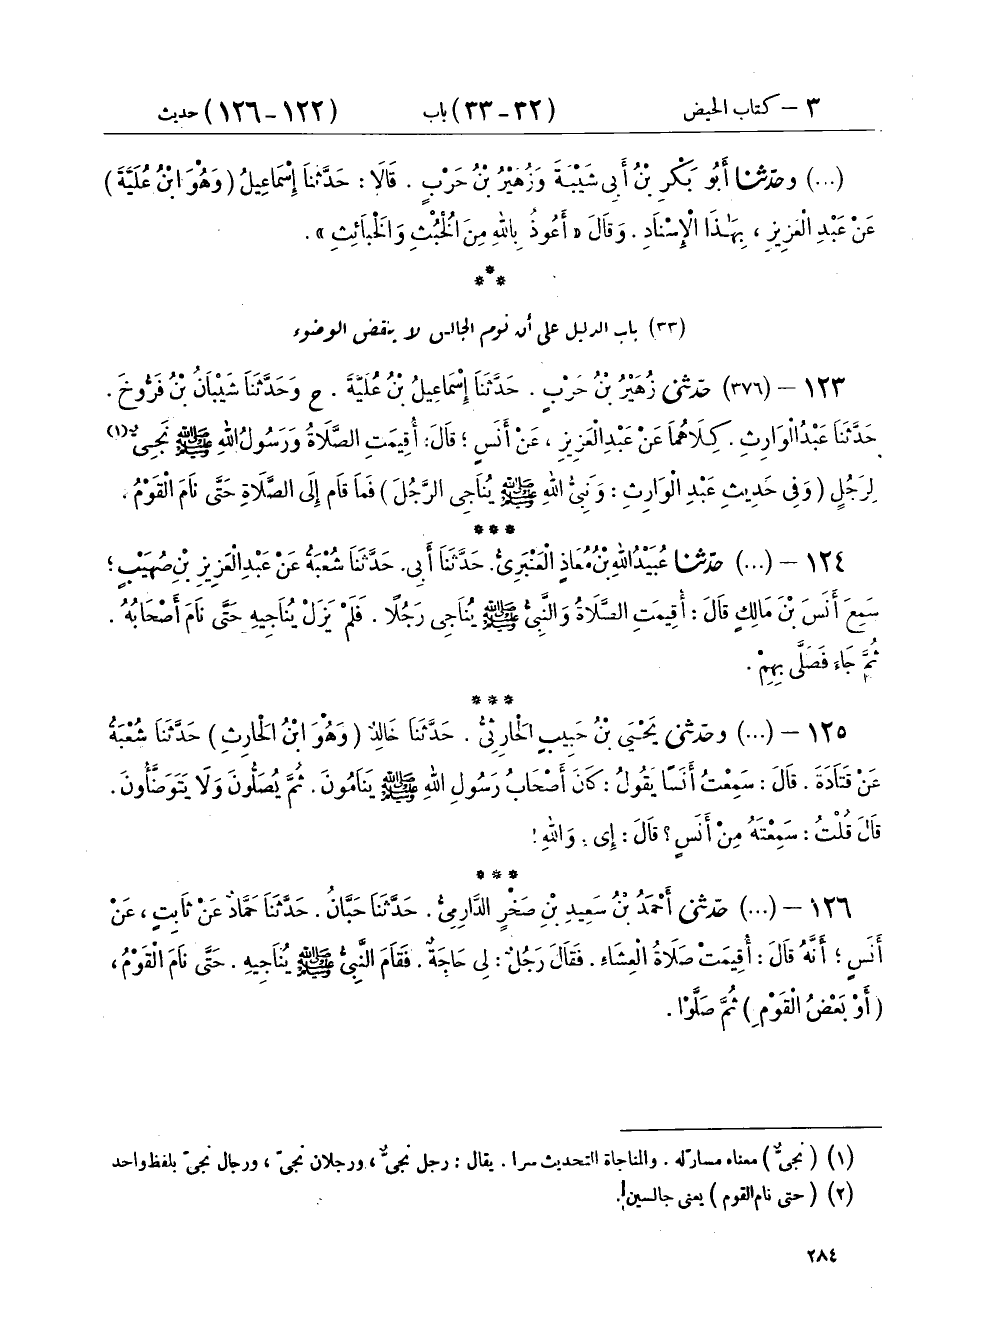 ٣ – كتاب الحيض (٣٢ – ٣٣) باب (١٢٢ – ١٢٦) حديث
(...) وحدّثنا أَبُو بَكْرِ بْنُ أَبِي شَيْبَةَ وَزُهَيْرُ بْنُ حَرْبٍ . قَالَا : حَدَّثَنَا إِسْمَاعِيلُ (وَهُوَ ابْنُ عُلَيَّةَ)
عَنْ عَبْدِ الْعَزِيزِ ، بِهَـٰذَا الْإِسْنَادِ . وَقَالَ « أَعُوذُ بِاللهِ مِنَ الْخُبْثِ وَالْخَبَائِثِ » .
***
(٣٣) باب الدليل على أن نوم الجالس لا ينقض الوضوء
١٢٣ – (٣٧٦) حدّثني زُهَيْرُ بْنُ حَرْبٍ . حَدَّثَنَا إِسْمَاعِيلُ بْنُ عُلَيَّةَ . ح وَحَدَّثَنَا شَيْبَانُ بْنُ فَرُّوخَ .
حَدَّثَنَا عَبْدُ الْوَارِثِ . كِلَاهُمَا عَنْ عَبْدِ الْعَزِيزِ ، عَنْ أَنَسٍ ؛ قَالَ : أُقِيمَتِ الصَّلَاةُ وَرَسُولُ اللهِ ﷺ نَجِيٌّ (١)
لِرَجُلٍ ( وَفِي حَدِيثِ عَبْدِ الْوَارِثِ : وَنَبِيُّ اللهِ ﷺ يُنَاجِي الرَّجُلَ ) فَمَا قَامَ إِلَى الصَّلَاةِ حَتَّى نَامَ الْقَوْمُ .
***
١٢٤ – (...) حدّثنا عُبَيْدُ اللهِ بْنُ مُعَاذٍ الْعَنْبَرِيُّ . حَدَّثَنَا أَبِي . حَدَّثَنَا شُعْبَةُ عَنْ عَبْدِ الْعَزِيزِ بْنِ صُهَيْبٍ ؛
سَمِعَ أَنَسَ بْنَ مَالِكٍ قَالَ : أُقِيمَتِ الصَّلَاةُ وَالنَّبِيُّ ﷺ يُنَاجِي رَجُلًا . فَلَمْ يَزَلْ يُنَاجِيهِ حَتَّى نَامَ أَصْحَابُهُ .
ثُمَّ جَاءَ فَصَلَّى بِهِمْ .
***
١٢٥ – (...) وحدّثني يَحْيَى بْنُ حَبِيبٍ الْحَارِثِيُّ . حَدَّثَنَا خَالِدٌ ( وَهُوَ ابْنُ الْحَارِثِ ) حَدَّثَنَا شُعْبَةُ
عَنْ قَتَادَةَ . قَالَ : سَمِعْتُ أَنَسًا يَقُولُ : كَانَ أَصْحَابُ رَسُولِ اللهِ ﷺ يَنَامُونَ . ثُمَّ يُصَلُّونَ وَلَا يَتَوَضَّأُونَ .
قَالَ قُلْتُ : سَمِعْتَهُ مِنْ أَنَسٍ ؟ قَالَ : إِي . وَاللهِ !
***
١٢٦ – (...) حدّثني أَحْمَدُ بْنُ سَعِيدِ بْنِ صَخْرٍ الدَّارِمِيُّ . حَدَّثَنَا حَبَّانُ . حَدَّثَنَا حَمَّادٌ عَنْ ثَابِتٍ ، عَنْ
أَنَسٍ ؛ أَنَّهُ قَالَ : أُقِيمَتْ صَلَاةُ الْعِشَاءِ . فَقَالَ رَجُلٌ : لِي حَاجَةٌ . فَقَامَ النَّبِيُّ ﷺ يُنَاجِيهِ . حَتَّى نَامَ الْقَوْمُ ،
( أَوْ بَعْضُ الْقَوْمِ ) ثُمَّ صَلَّوْا .
(١) ( نجيٌّ ) معناه مسارّ له . والمناجاة التحديث سرا . يقال : رجل نجيٌّ ، ورجلان نجيّ ، ورجال نجيّ بلفظ واحد
(٢) ( حتى نام القوم ) يعني جالسين .
٢٨٤